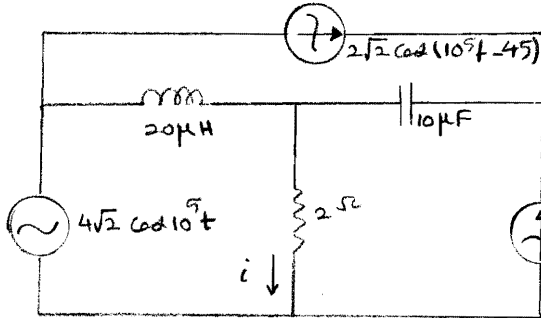 2√2 cos(10⁵t-45)
20μH
10μF
4√2 cos10⁵t
2Ω
i